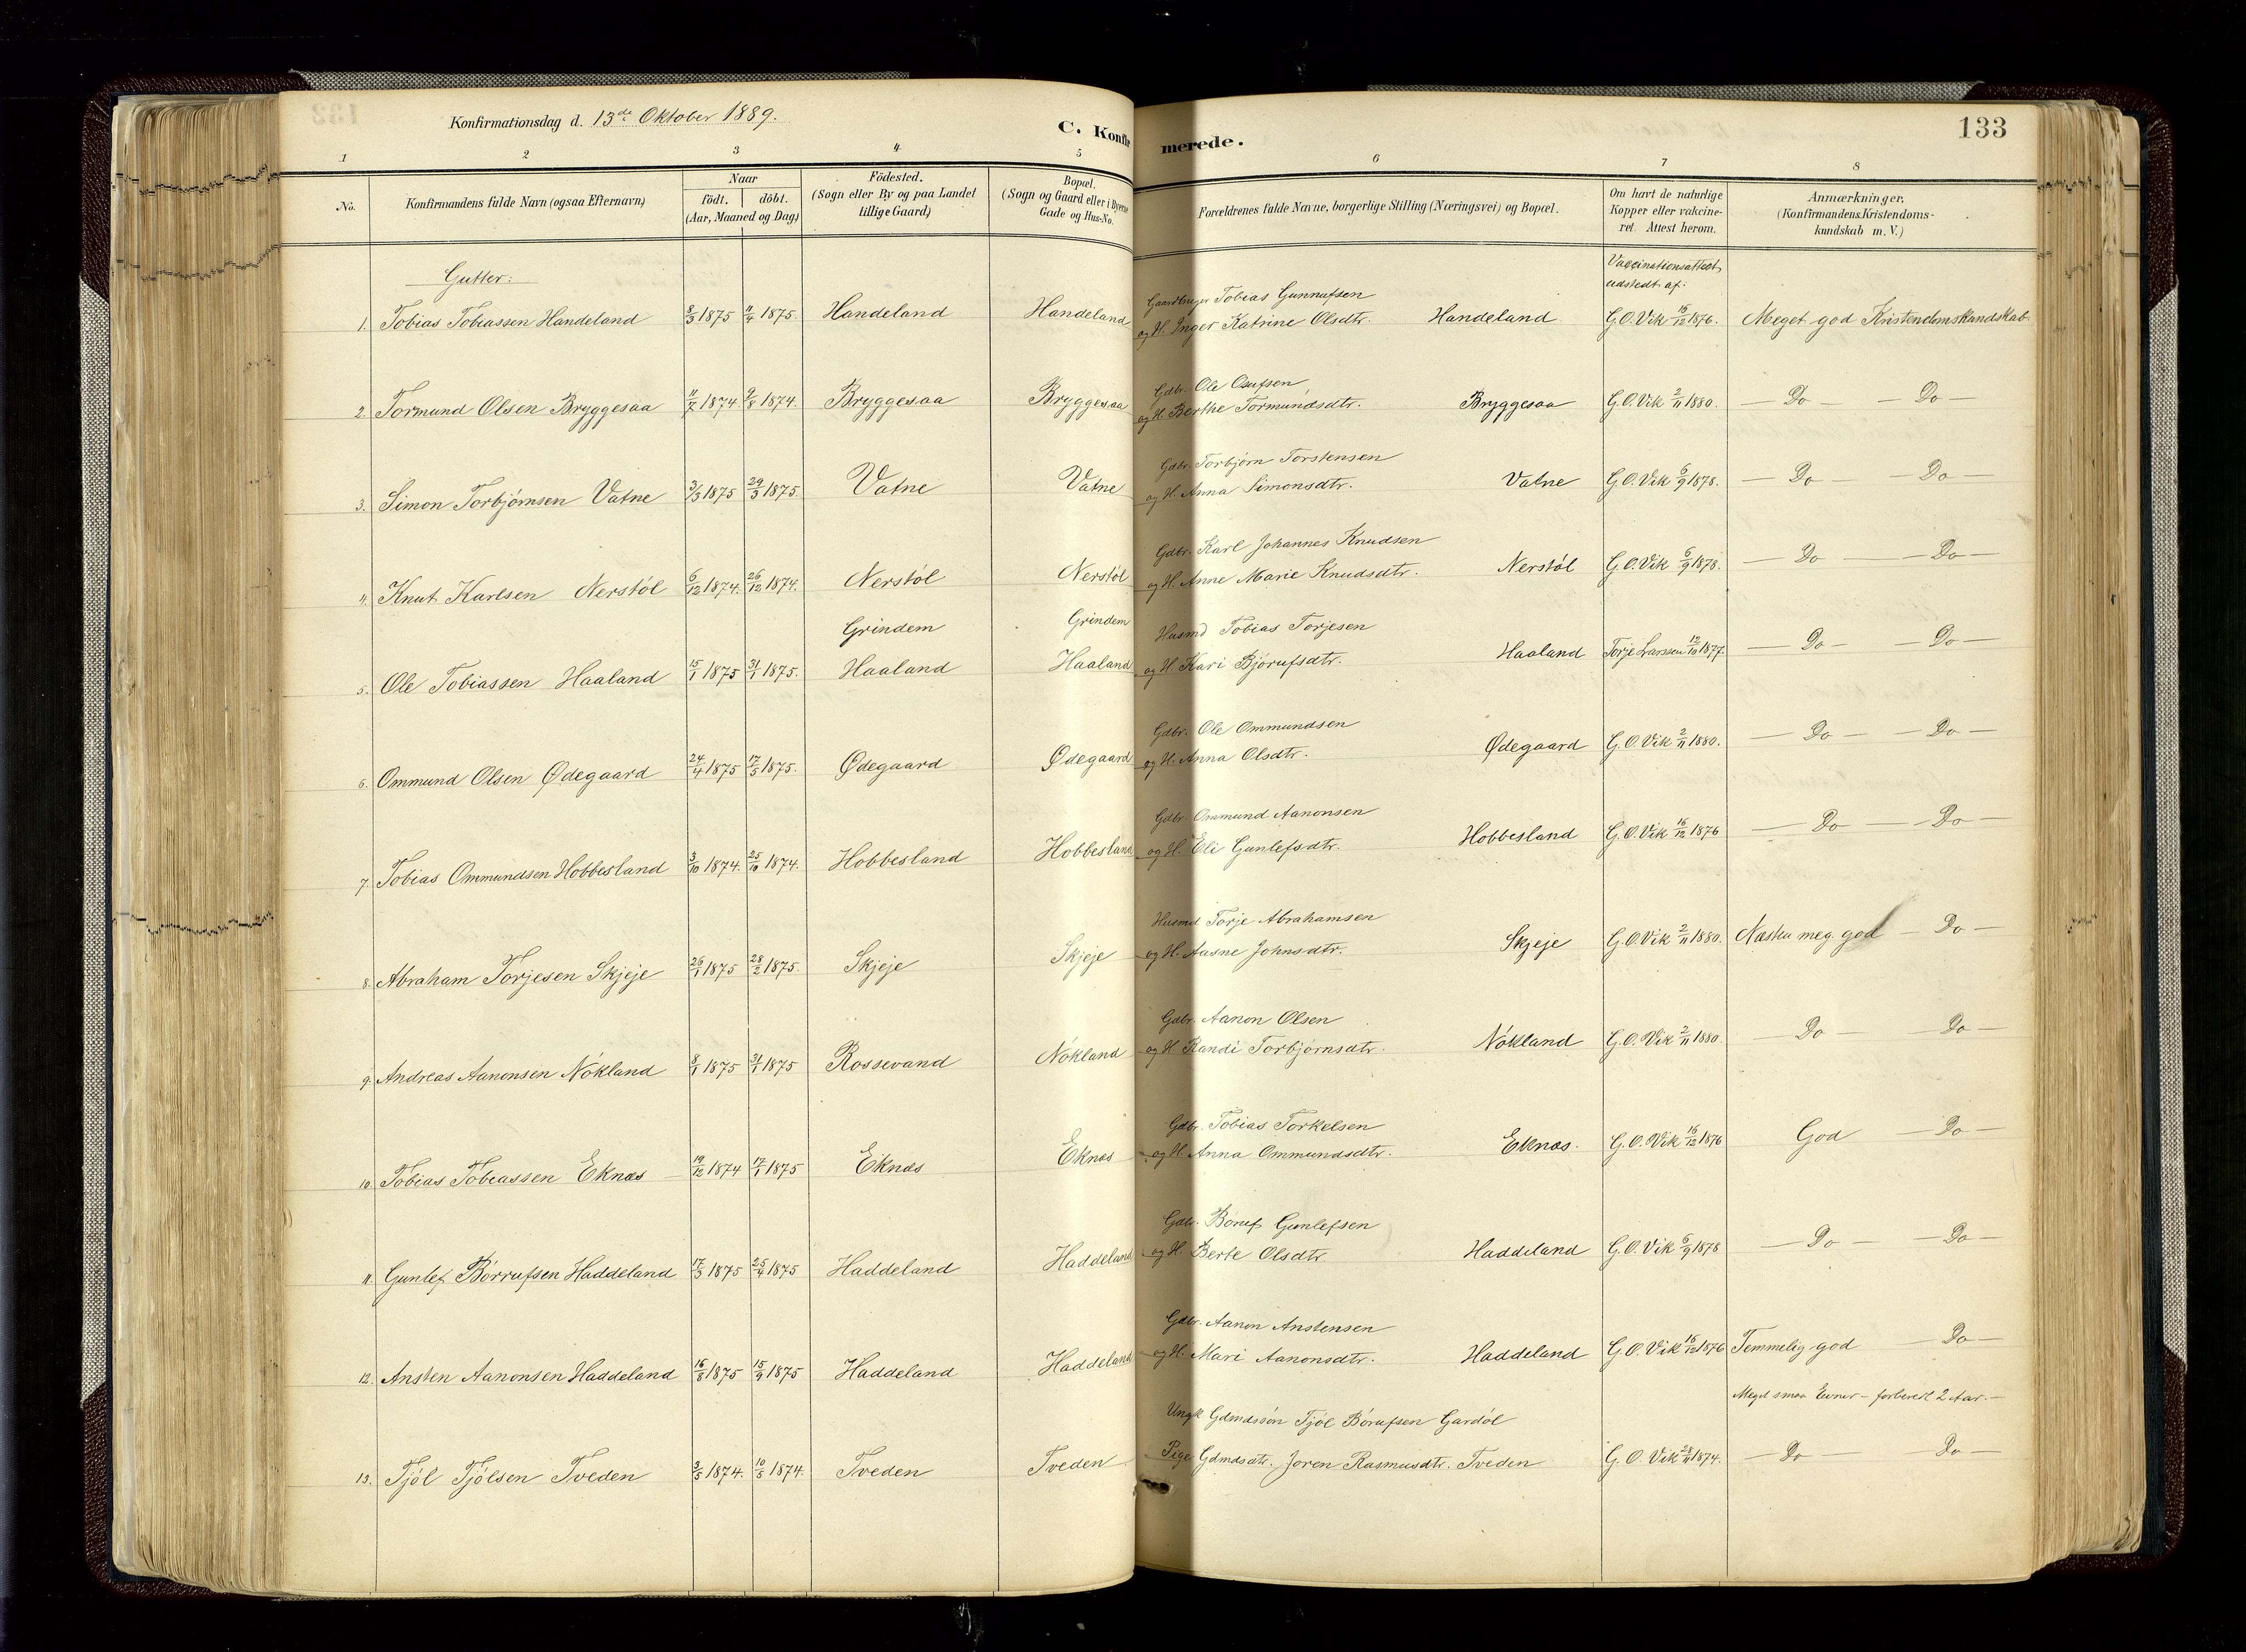 133
Konfirmationsdag d. 13de Oktober 1889.
C. Konfirmerede.
1 2 3 4 5 6 7 8
No.
Konfirmandens fulde Navn (ogsaa Efternavn)
Naar
födt. döbt.
(Aar, Maaned og Dag)
Födested.
(Sogn eller By og paa Landet
tillige Gaard)
Bopæl.
(Sogn og Gaard eller i Byerne
Gade og Hus-No.
Forældrenes fulde Navne, borgerlige Stilling (Næringsvei) og Bopæl.
Om havt de naturlige
Kopper eller vakcine-
ret. Attest herom.
Anmærkninger.
(Konfirmandens Kristendoms-
kundskab m. V.)
Gutter:
Vaccinationsattest
udstedt af:
Gaardbruger Tobias Gunnufsen
1. Tobias Tobiassen Handeland 8/3 1875 11/4 1875. Handeland Handeland og H. Inger Katrine Olsdtr. Handeland G.O. Vik 15/12 1876. Meget god Kristendomskundskab.
Gdbr. Ole Osufsen
2. Tormund Olsen Bryggesaa 11/7 1874. 9/8 1874. Bryggesaa Bryggesaa og H. Berthe Tormundsdtr. Bryggesaa G.O. Vik 2/11 1880. — Do — — Do —
Gdbr. Torbjørn Torstensen
3. Simon Torbjørnsen Vatne 3/3 1875 29/3 1875. Vatne Vatne og H. Anna Simonsdtr. Vatne G.O. Vik 6/9 1878. — Do — — Do —
Gdbr. Karl Johannes Knudsen
4. Knut Karlsen Nerstöl 6/12 1874. 26/12 1874. Nerstöl Nerstöl og H. Anne Marie Knudsdtr. Nerstöl G.O. Vik 6/9 1878. — Do — — Do —
Grindem Grindem Husmd Tobias Torjesen
5. Ole Tobiassen Haaland 15/1 1875 31/1 1875. Haaland Haaland og H. Kari Bjorufsdtr. Haaland Torje Larssen 12/10 1877. — Do — — Do —
Gdbr. Ole Ommundsen
6. Ommund Olsen Ødegaard 24/4 1875 17/5 1875. Ødegaard Ødegaard og H. Anna Olsdtr. Ødegaard G.O. Vik 2/11 1880. — Do — — Do —
Gdbr. Ommund Aanonsen
7. Tobias Ommundsen Hobbesland 3/10 1874. 25/10 1874. Hobbesland Hobbesland og H. Eli Gunlefsdtr. Hobbesland G.O. Vik 16/12 1876 — Do — — Do —
Husmd Torje Abrahamsen
8. Abraham Torjesen Skjeje 26/1 1875 28/2 1875. Skjeje Skjeje og H. Aasne Johnsdtr. Skjeje G.O. Vik 2/11 1880. Næsten meg. god — Do —
Gdbr. Aanon Olsen
9. Andreas Aanonsen Nökland 8/1 1875 31/1 1875 Rossevand Nökland og H. Randi Torbjørnsdtr. Nökland G.O. Vik 2/11 1880. — Do — — Do —
Gdbr. Tobias Torkelsen
10. Tobias Tobiassen Eknæs 19/12 1874 17/1 1875 Eknæs Eknæs og H. Anna Ommundsdtr. Eknæs. G.O. Vik 16/12 1876 God — Do —
Gdbr. Böruf Gunlefsen
11. Gunlef Börrufsen Haddeland 17/3 1875 25/4 1875 Haddeland Haddeland og H. Berte Olsdtr. Haddeland G.O. Vik 6/9 1878 — Do — — Do —
Gdbr. Aanon Anstensen
12. Ansten Aanonsen Haddeland 16/8 1875 15/9 1875 Haddeland Haddeland og H. Mari Aanonsdtr. Haddeland G.O. Vik 16/12 1876 Temmelig god — Do —
Meget smaa Evner – forberedt 2 Aar. —
Ungk Gdmdssön Tjöl Börufsen Gardöl
13. Tjöl Tjölsen Tveden 3/5 1874. 10/5 1874. Tveden Tveden Pige Gdmdsdtr. Joren Rasmusdtr. Tveden G.O. Vik 28/11 1874. — Do — — Do —